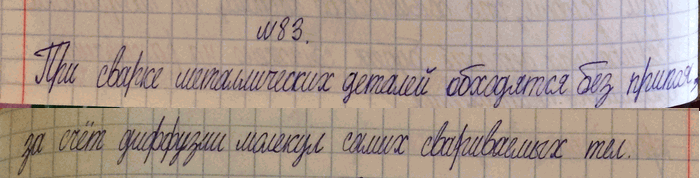 №83.
При сварке металлических деталей обходятся без припоя,
за счёт диффузии молекул самих свариваемых тел.